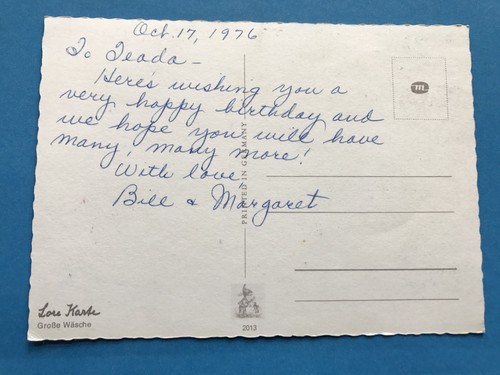 Oct. 17, 1976
To Teada –
Here's wishing you a
very happy birthday and
we hope you will have
many, many more!
With love
Bill & Margaret
PRINTED IN GERMANY
m
Große Wäsche
2013